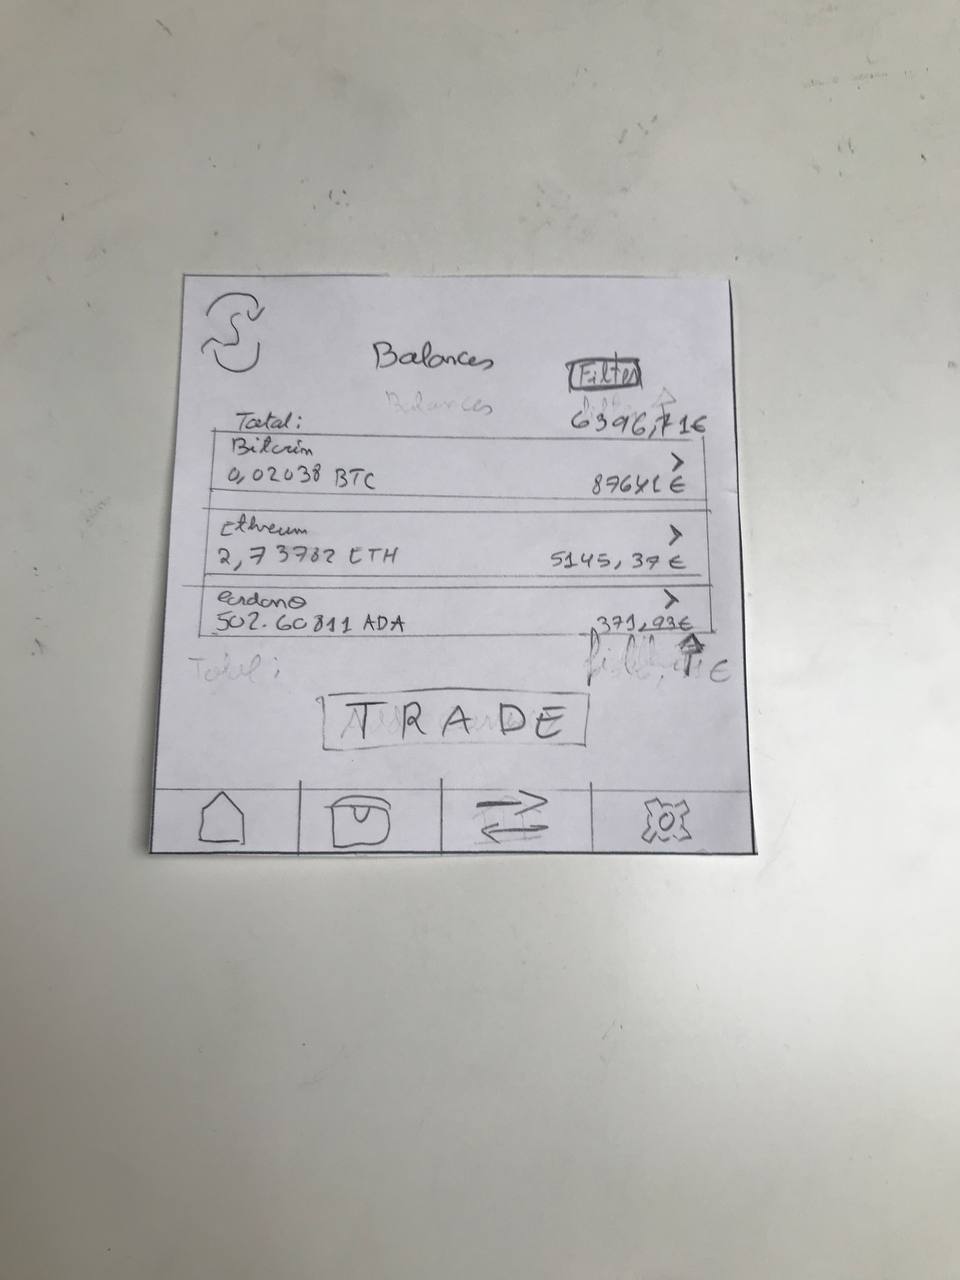 S
Balances
Filter
Balances
Total: 6396,71€
Bitcoin
0,02038 BTC 876,41€
Ethreum
2,73782 ETH 5145,37€
Cardano
502.60811 ADA 371,93€
Total: €
TRADE